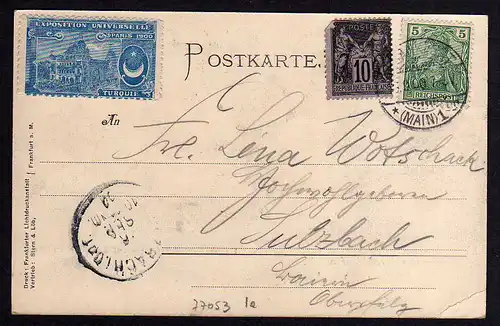 EXPOSITION UNIVERSELLE
PARIS 1900
TURQUIE
POSTKARTE.
POSTES
10
5
REICHSPOST
(MAIN) 1
An
Frl. Lena Wotschack
Hochwohlgeboren
Sulzbach
Baiern
Oberpfalz
Druck: Frankfurter Lichtdruckanstalt
Vertrieb: Stern & Löb,
Frankfurt a. M.
SEP
37053 la